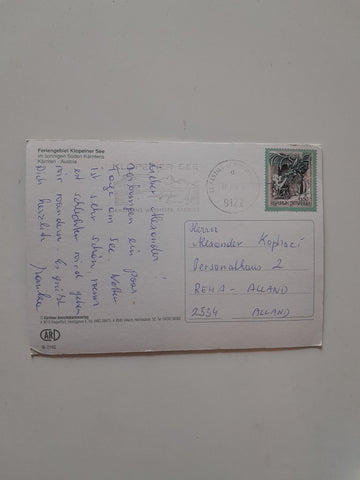 Feriengebiet Klopeiner See
im sonnigen Süden Kärntens
Kärnten - Austria
Lieber Alexander!
Verbringen ein paar
Tage am See. Wetter
ist sehr schön, wenn
es schlechter wird gehen
wir wandern. Es grüßt
Dich herzlich
KLOPEINER SEE
9122
REPUBLIK ÖSTERREICH
Herrn
Alexander
Personalhaus 2
REHA - ALLAND
2534 ALLAND
ARL